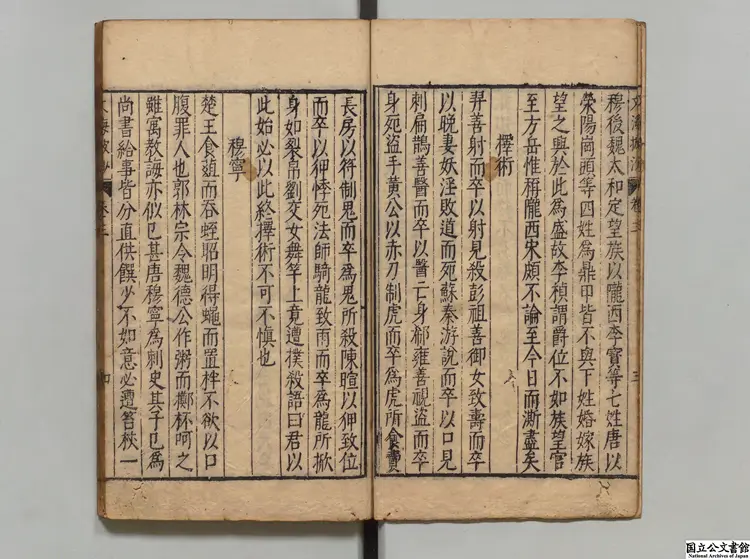 卷三
三
穆後魏太和定望族以隴西李寶等七姓唐以
榮陽崗頭等四姓為鼎甲皆不與下姓婚嫁族
望之興於此為盛故李稹謂爵位不如族望官
至方岳惟稱隴西宋頗不論至今日而澌盡矣
擇術
羿善射而卒以射見殺彭祖善御女致壽而卒
以晚妻妖淫敗道而死蘇秦游說而卒以口見
刺扁鵲善醫而卒以醫亡身郗雍善視盜而卒
身死盜手黃公以赤刀制虎而卒為虎所食費
長房以符制鬼而卒為鬼所殺陳暄以狎致位
而卒以狎悸死法師騎龍致雨而卒為龍所掀
身如裂帛劉交女舞竿上竟遭撲殺語曰君以
此始必以此終擇術不可不慎也
穆寧
楚王食葅而吞蛭昭明得蠅而置柈不欲以口
腹罪人也郭林宗令魏德公作粥而擲杯呵之
雖寓教誨亦似已甚唐穆寧為刺史其子已為
尚書給事皆分直供饌少不如意必遭笞杖一
卷三
四
国立公文書館
National Archives of Japan